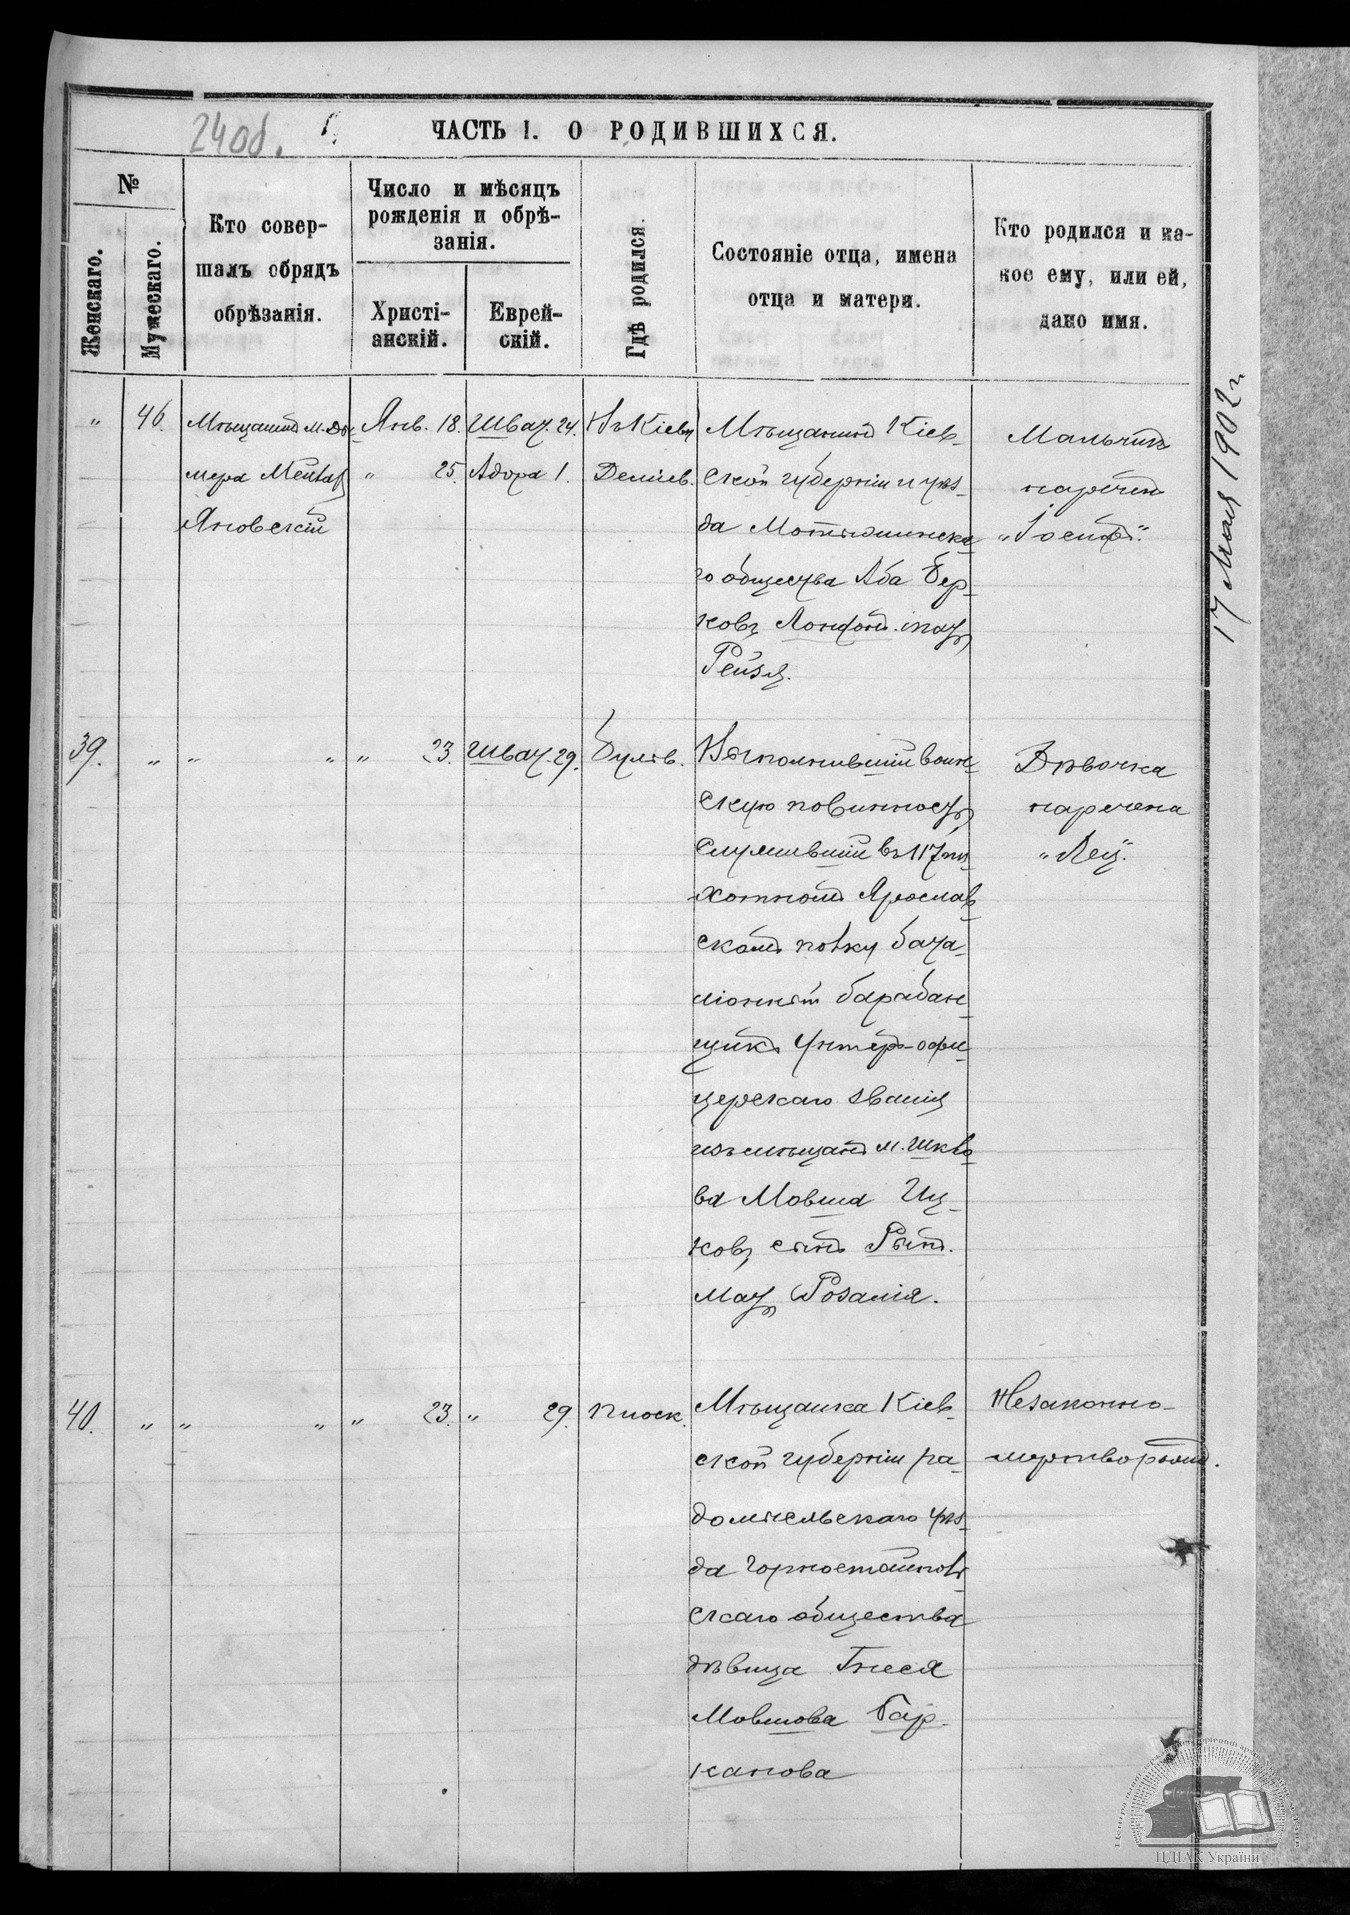 240б.
ЧАСТЬ I. О РОДИВШИХСЯ.
№
Женскаго.
Мужескаго.
Кто совер-
шалъ обрядъ
обрѣзанія.
Число и мѣсяцъ
рожденія и обрѣ-
занія.
Христі-
анскій.
Еврей-
скій.
Гдѣ родился.
Состояніе отца, имена
отца и матери.
Кто родился и ка-
кое ему, или ей,
дано имя.
" 46. Мѣщанинъ м. Ды-
мера
Яновскій
Янв. 18.
" 25.
Шват. 24.
Адора 1.
Въ Кіевѣ
Деміев.
Мѣщанинъ Кіев-
ской губерніи и уѣз-
да Мотыжинска-
го общества Аба Бер-
ковъ мать
Рейзя.
Мальчикъ
нареченъ
„Іосифъ".
39. " " " " 23. Шват. 29. Бульв.
Выполнившій воин-
скую повинность,
служившій въ 117 пѣ-
хотномъ Ярослав-
скомъ полку бата-
ліонный барабан-
щикъ унтеръ-офи-
церскаго званія
изъ мѣщанъ м. Шкло-
ва Мовша Иц-
ковъ сынъ Рыт.
мать Розалія.
Дѣвочка
наречена
„Лея".
40. " " " " 23. " 29. Плоск.
Мѣщанка Кіев-
ской губерніи ра-
домысльскаго уѣз-
да Горностайполь-
скаго общества
дѣвица Гнеся
Мовшова Бар-
канова
Незаконно-
мертворожд.
17 Мая 1902 г.
ЦДІАК України